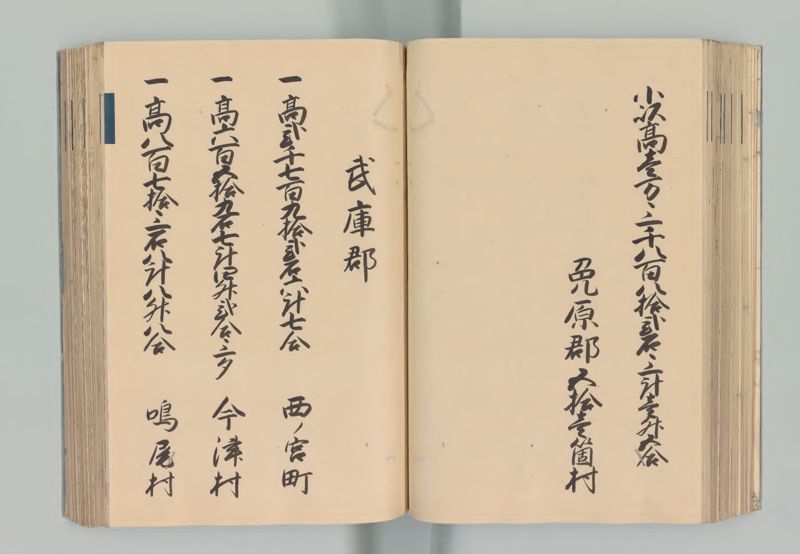 小以高壱万三千八百八拾弐石三斗壱升五合
菟原郡五拾壱箇村
武庫郡
一高弐千七百九拾弐石六斗七合 西ノ宮町
一高六百五拾九石七斗四升弐合三夕 今津村
一高八百七拾三石八斗八升八合 鳴尾村